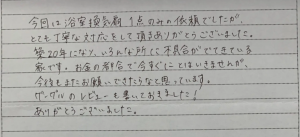 今回は浴室換気扇1点のみの依頼でしたが、
とても丁寧な対応をして頂きありがとうございました。
築20年になり、いろんな所に不具合がでてきている
家です。お金の都合で今すぐにとはいきませんが、
今後もまたお願いできたらなと思っています。
グーグルのレビューも書いておきました!
ありがとうございました。